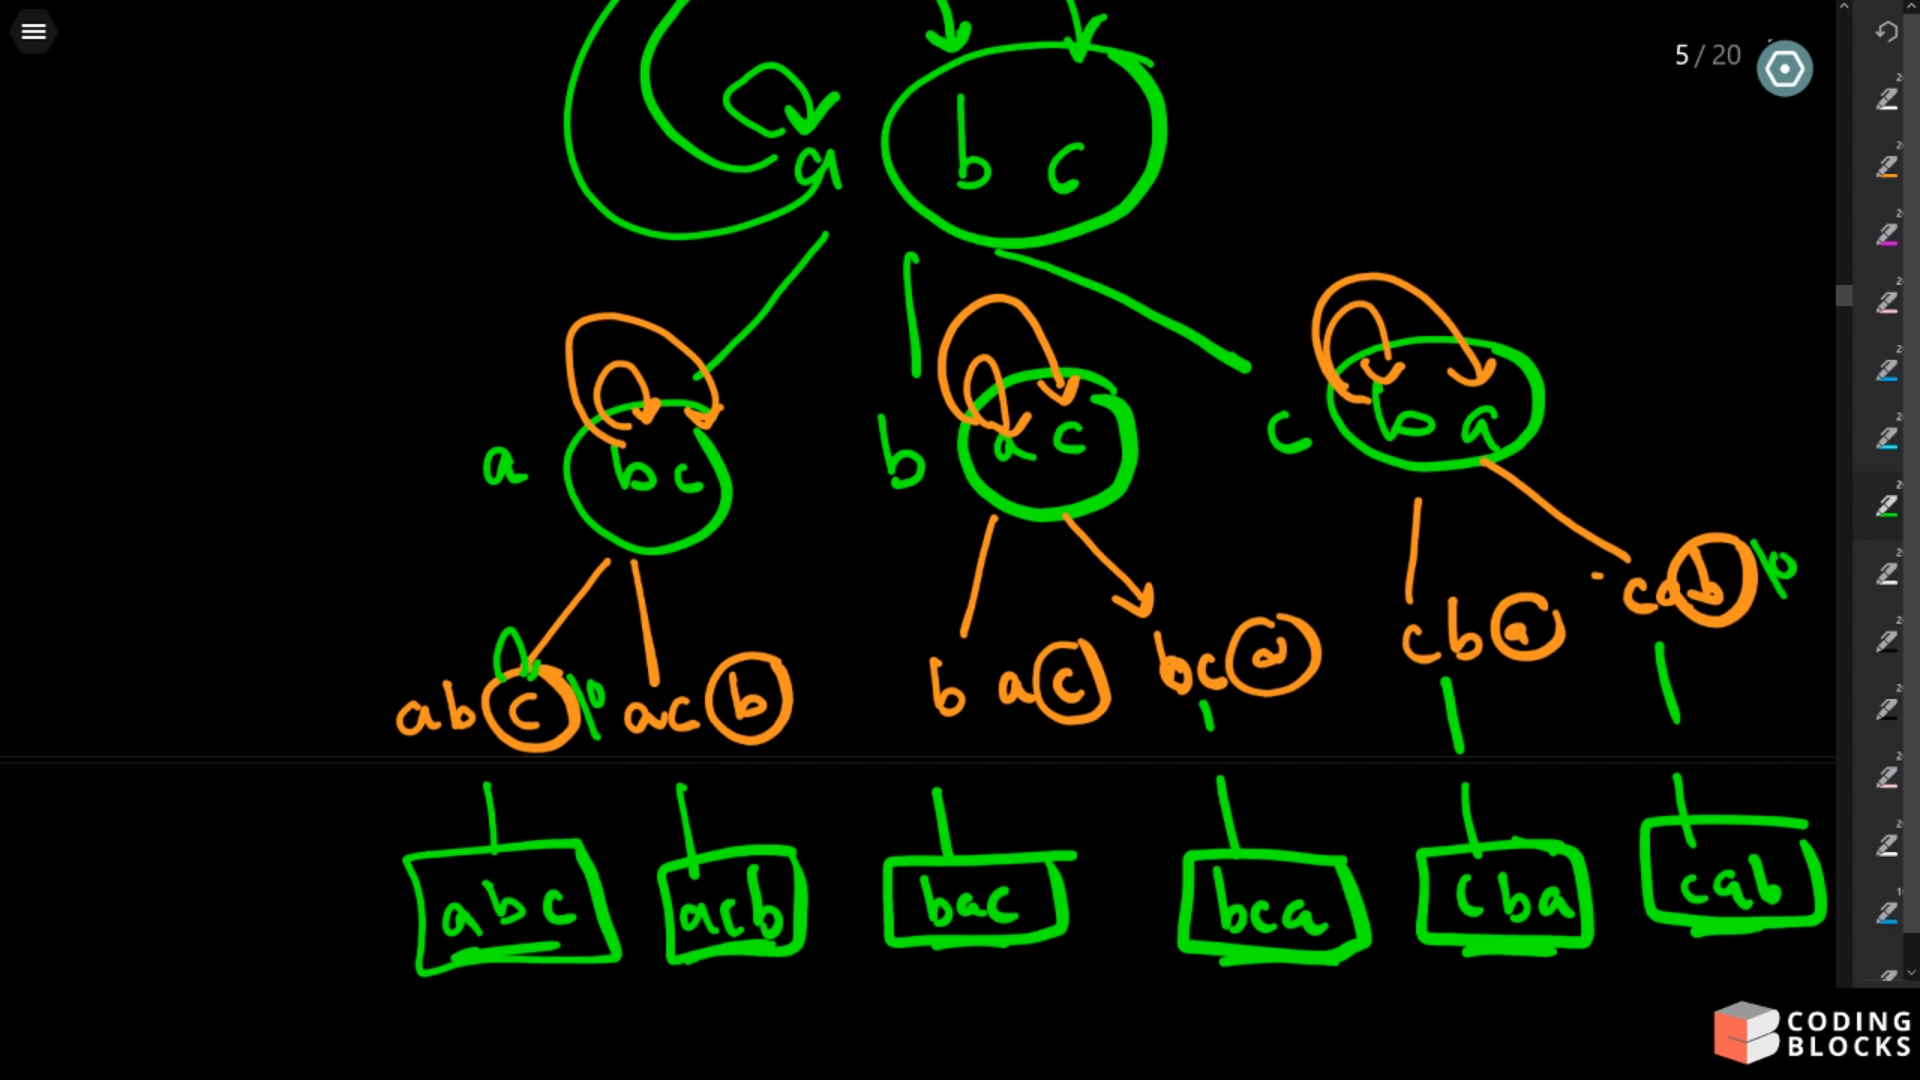 5 / 20
a b c
a b c
b a c
c b a
abc \0
acb
bac
bca
cba
cab \0
abc
acb
bac
bca
cba
cab
CODING
BLOCKS